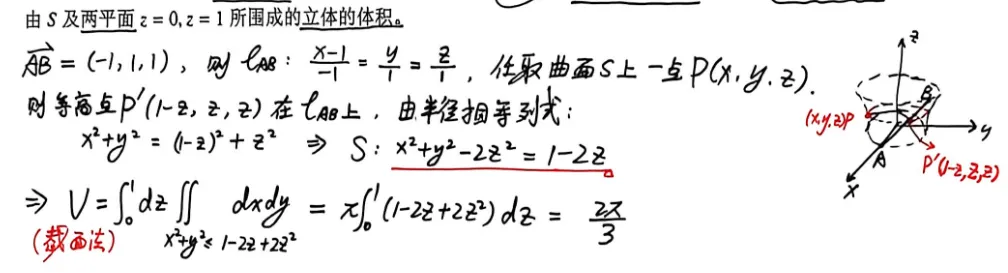 由 S 及两平面 z = 0, z = 1 所围成的立体的体积。
AB→ = (-1, 1, 1), 则 l_AB: (x-1)/-1 = y/1 = z/1, 任取曲面S上一点P(x, y, z).
则等高点P'(1-z, z, z)在l_AB上, 由半径相等列式:
x²+y² = (1-z)² + z² ⇒ S: x²+y²-2z² = 1-2z
⇒ V = ∫₀¹dz ∬ dxdy = π∫₀¹(1-2z+2z²)dz = 2π/3
(截面法) x²+y² ≤ 1-2z+2z²
z
B
(x,y,z)P
y
A
P'(1-z,z,z)
x